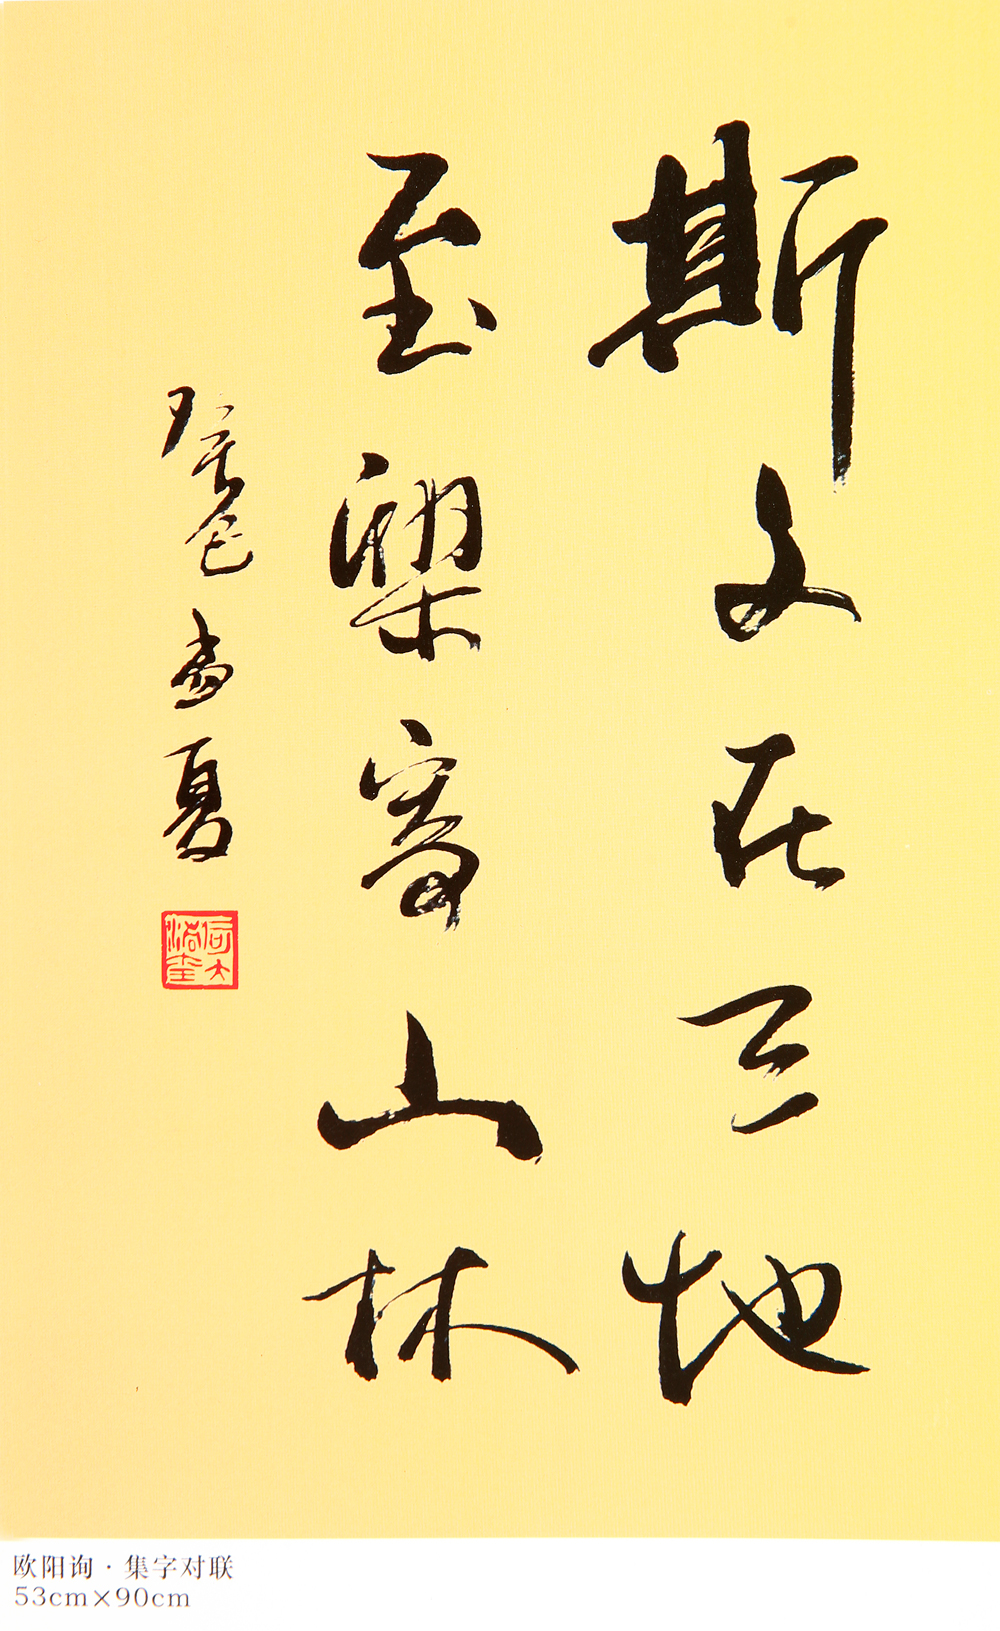 斯文在天地
至樂寄山林
癸巳夏
欧阳询·集字对联
53cm×90cm